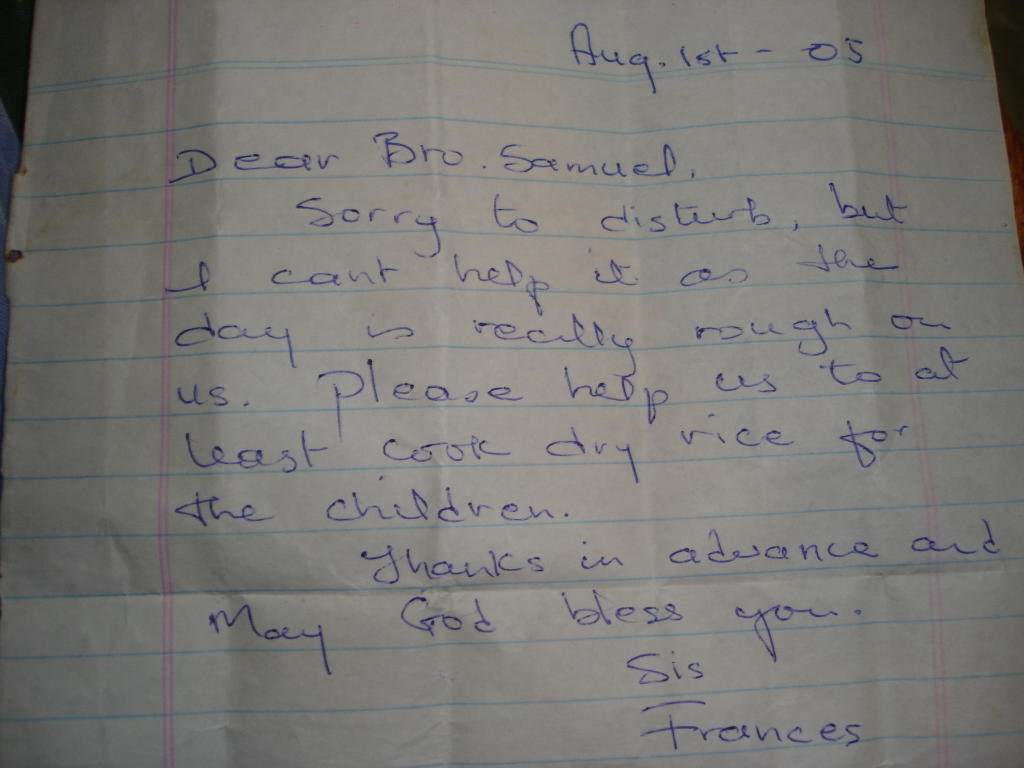 Aug. 1st - 05
Dear Bro. Samuel,
Sorry to disturb, but
I cant help it as the
day is really rough on
us. Please help us to at
least cook dry rice for
the children.
Thanks in advance and
May God bless you.
Sis
Frances